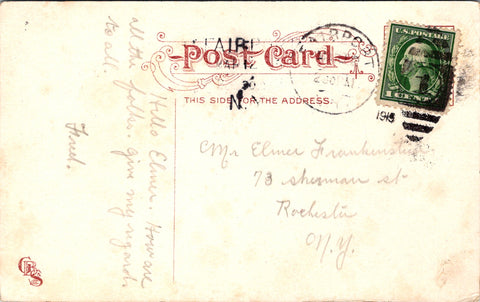 Post Card
THIS SIDE FOR THE ADDRESS.
FAIRPORT
N.
1913
U.S. POSTAGE
1 CENT 1
Hello Elmer. How are
all the folks. give my regards
to all.
Fred.
Mr Elmer Frankenstein
73 Sherman st
Rochester
N.Y.